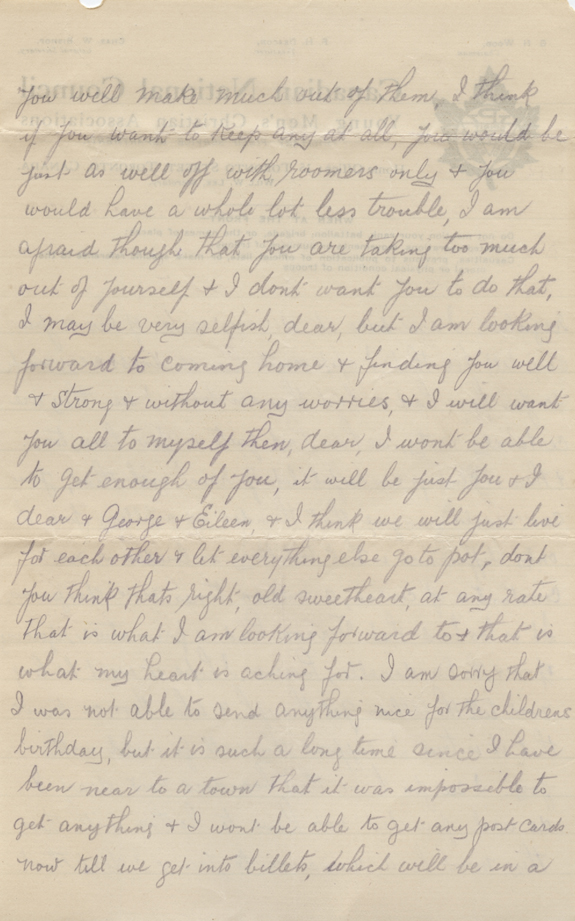 you will make much out of them, I think
if you want to keep any at all, you would be
just as well off with roomers only & you
would have a whole lot less trouble, I am
afraid though that you are taking too much
out of yourself & I dont want you to do that,
I may be very selfish, dear, but I am looking
forward to coming home & finding you well
& strong & without any worries, & I will want
you all to myself then, dear, I wont be able
to get enough of you, it will be just you & I
dear & George & Eileen, & I think we will just live
for each other & let everything else go to pot, dont
you think thats right, old sweetheart, at any rate
that is what I am looking forward to & that is
what my heart is aching for. I am sorry that
I was not able to send anything nice for the childrens
birthday, but it is such a long time since I have
been near to a town that it was impossible to
get anything & I wont be able to get any post cards
now till we get into billets, which will be in a